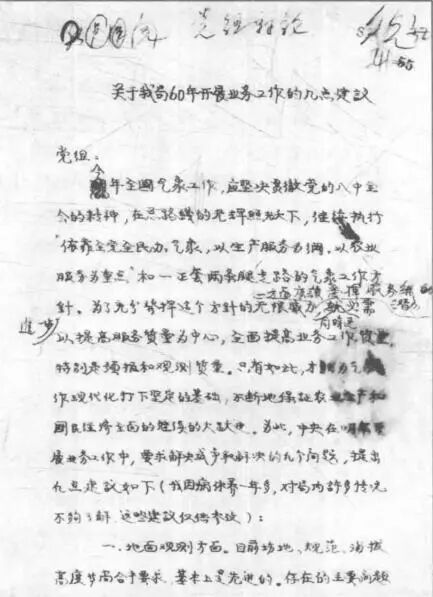 党组讨论
关于我局60年开展业务工作的九点建议
党组：
今年全国气象工作，应坚决贯彻党的八中全
会的精神，在总路线的光辉照耀下，继续执行
"依靠全党全民办气象，以生产服务为纲，以农业
服务为重点"和一整套两条腿走路的气象工作方
针。为了充分发挥这个方针的无限威力
进一步
以提高服务质量为中心，全面提高业务工作质量，
特别是预报和观测质量。只有如此，才能为气
作现代化打下坚定的基础，不断地保证农业生产和
国民经济全面的继续的大跃进。为此，中央在
展业务工作中，要求解决或争取解决的九个问题，提出
九点建议如下（我因病休养一年多，对局内许多情况
不够了解，这些建议仅供参考）：
一、地面观测方面。目前场地、规范、海拔
高度等尚合乎要求，基本上是先进的。存在的主要问题